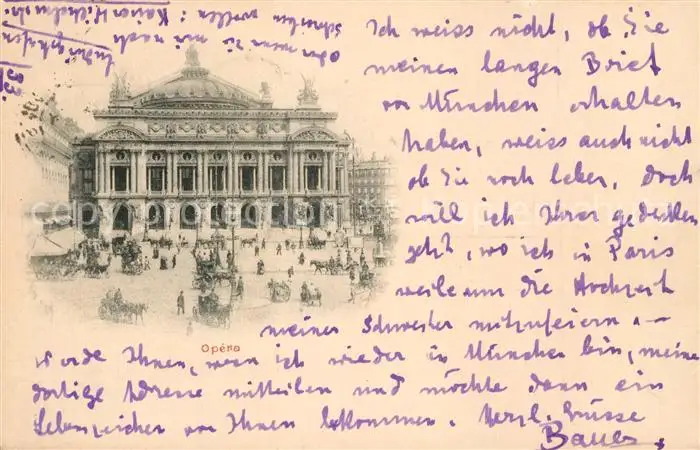 Ich weiss nicht, ob Sie
meinen langen Brief
von München erhalten
haben, weiss auch nicht
ob Sie noch leben, doch
will ich Ihrer gedenken
jetzt, wo ich in Paris
weile um die Hochzeit
meiner Schwester mitzufeiern. —
Werde Ihnen, wenn ich wieder in München bin, meine
dortige Adresse mitteilen und möchte dann ein
Lebenszeichen von Ihnen bekommen. Herzl. Grüsse
Bauer.
Opéra
oder wenn Sie mir nach
schreiben wollen: Kaiser Wilhelmstr.
Ludwigshafen
33.